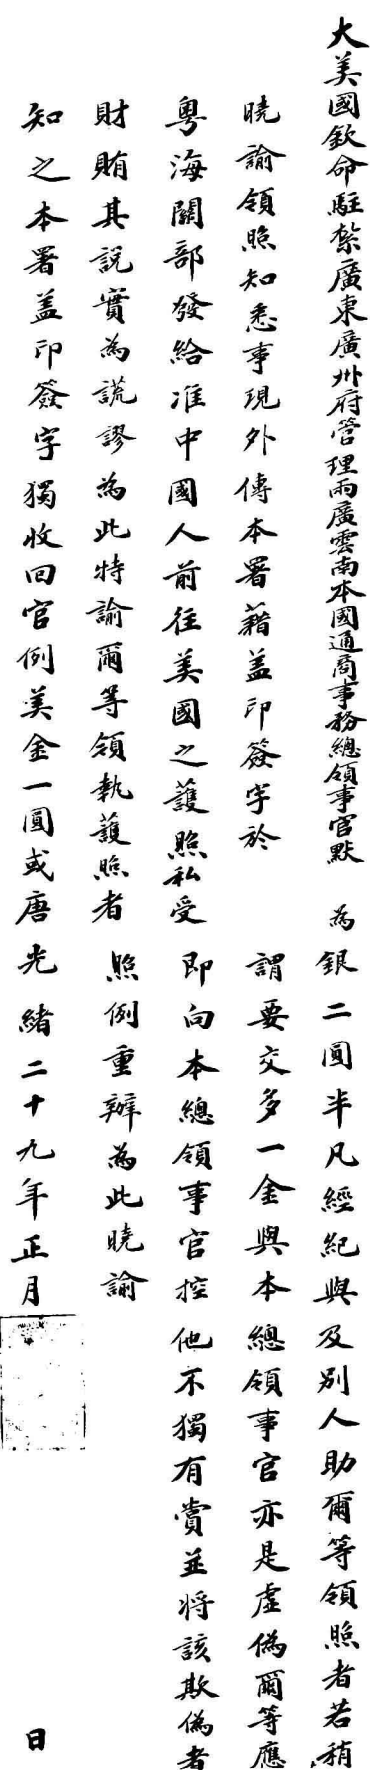 大美國欽命駐紮廣東廣州府管理兩廣雲南本國通商事務總領事官默 為
曉諭領照知悉事現外傳本署藉蓋印簽字於
粵海關部發給准中國人前往美國之護照私受
財賄其說實為謊謬為此特諭爾等領執護照者
知之本署蓋印簽字獨收回官例美金一圓或唐
銀二圓半凡經紀與及別人助爾等領照者若稍
謂要交多一金與本總領事官亦是虛偽爾等應
即向本總領事官控他不獨有賞並將該欺偽者
照例重辦為此曉諭
光緒二十九年正月 日